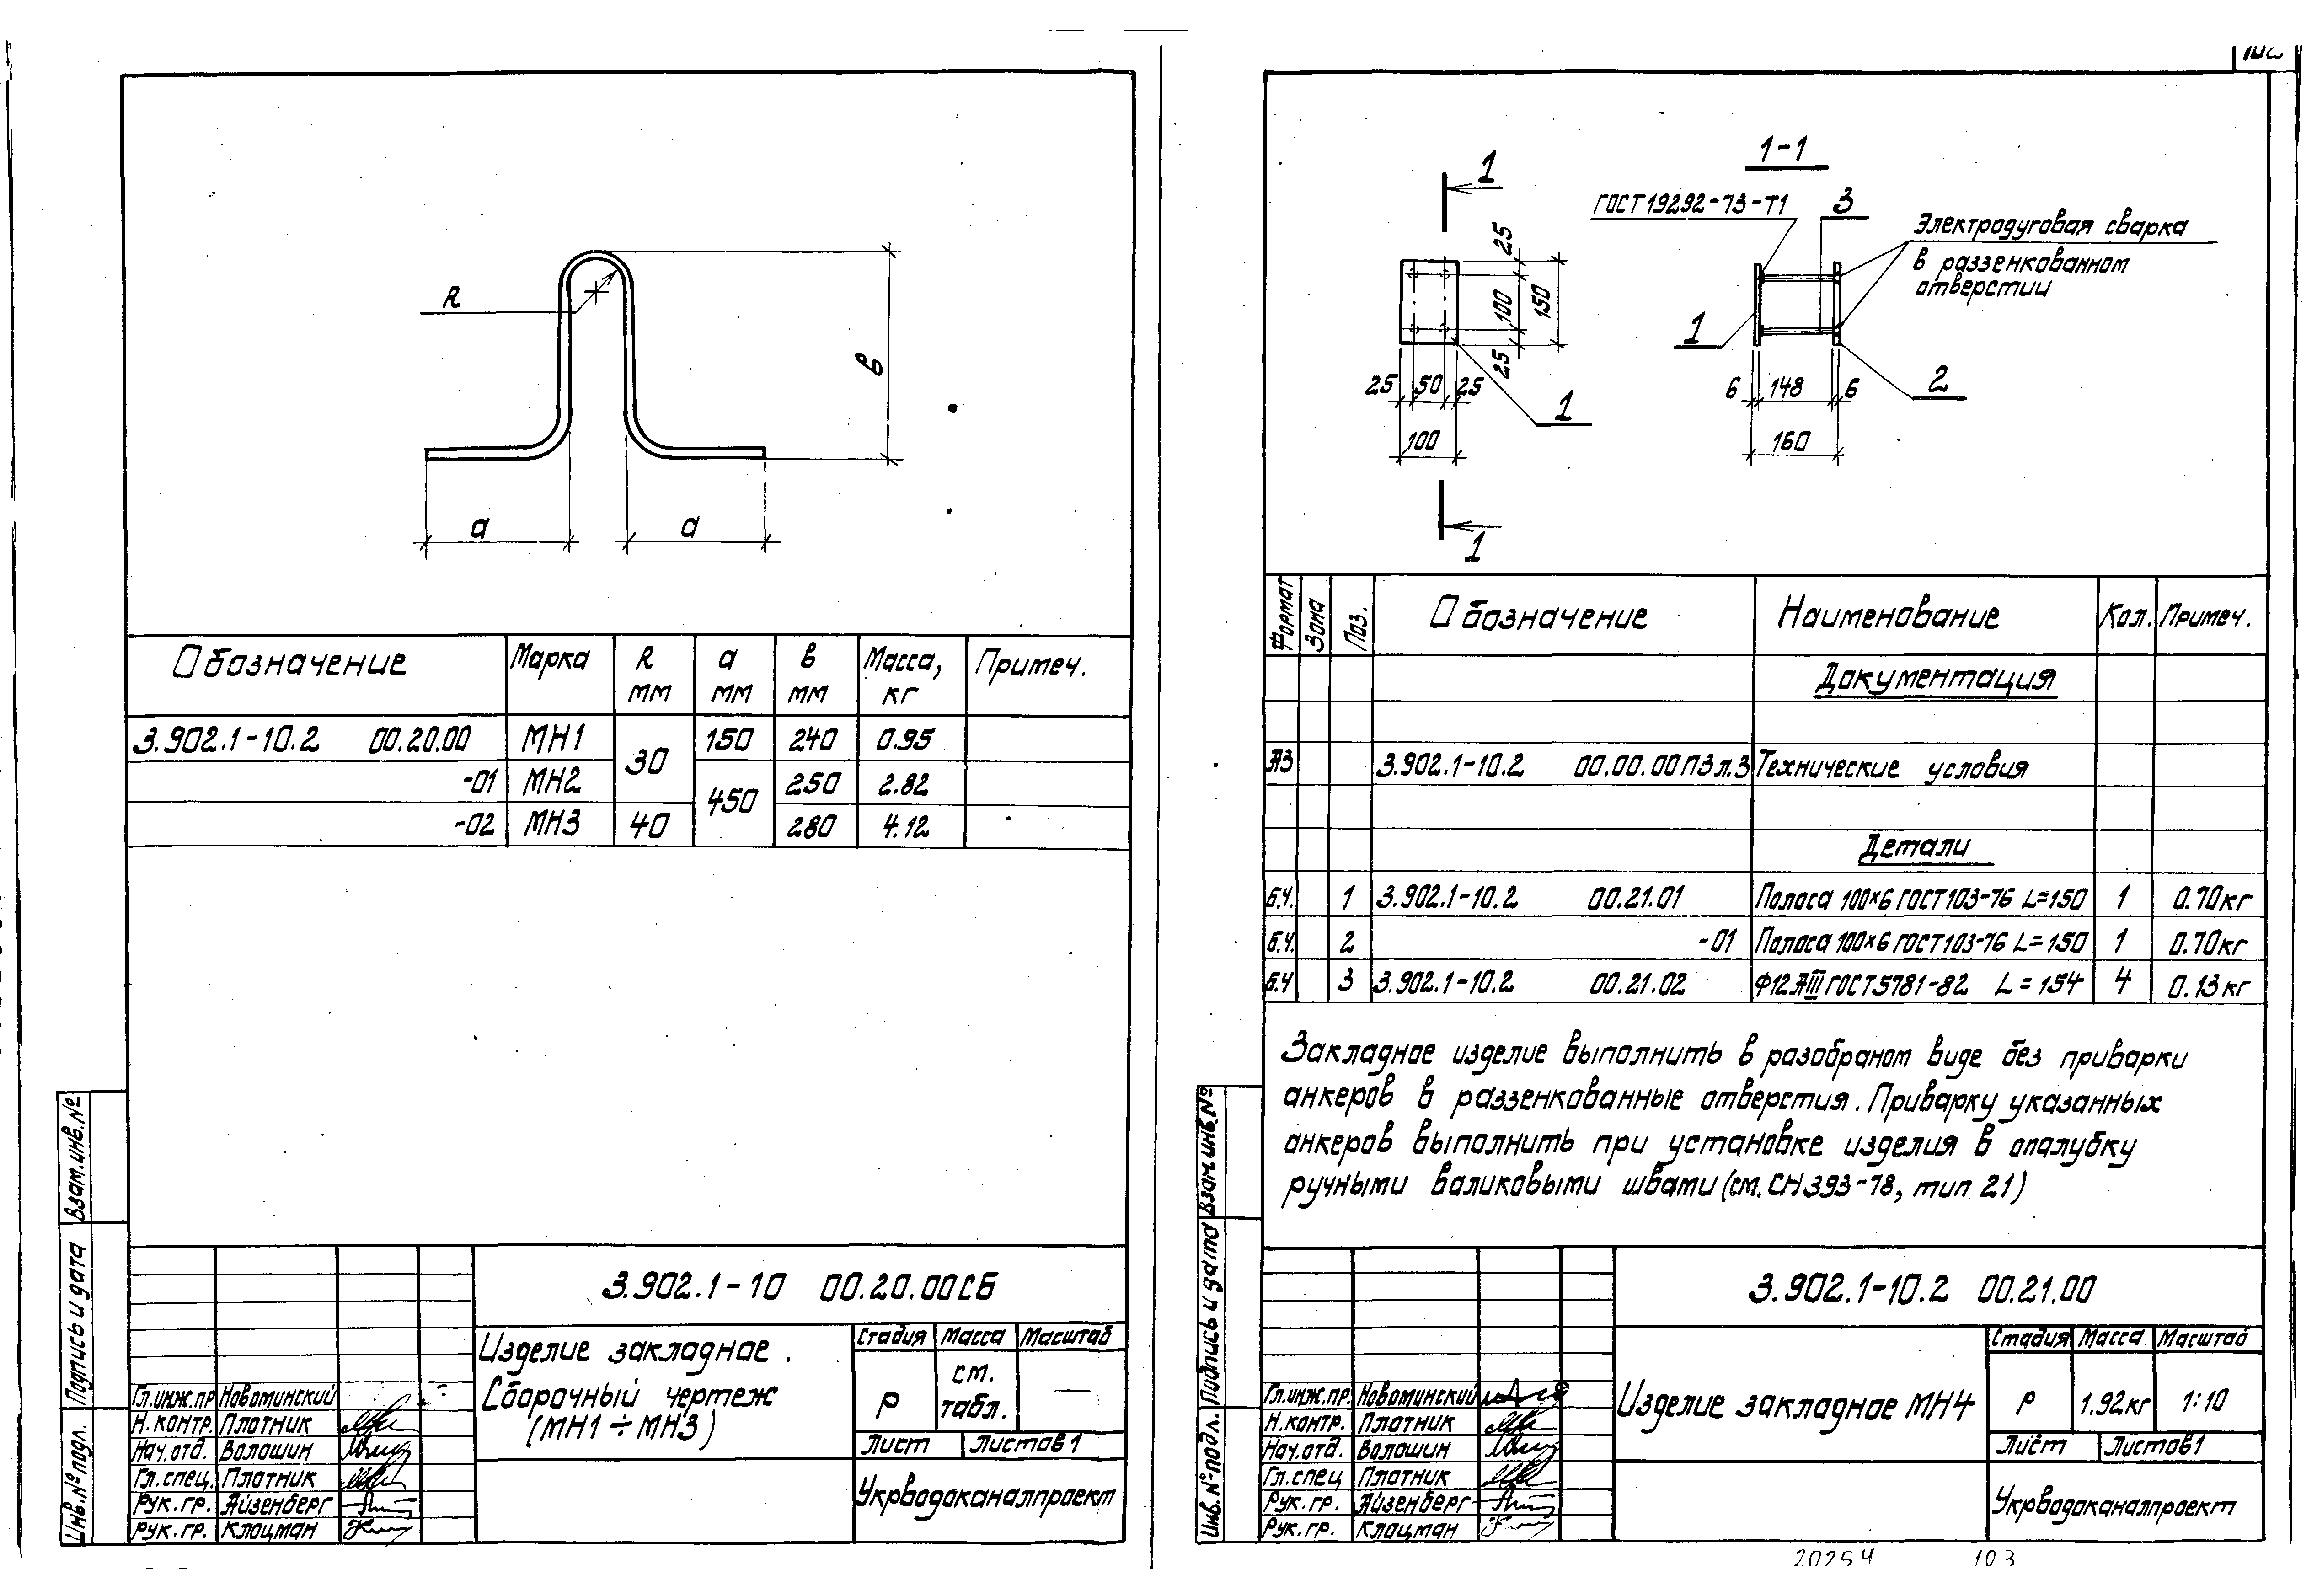 R
в
а
а
Обозначение Марка R мм а мм в мм Масса, кг Примеч.
3.902.1-10.2 00.20.00 МН1 30 150 240 0.95
-01 МН2 450 250 2.82
-02 МН3 40 280 4.12
Взам.инв.№
Подпись и дата
Инв.№ подл.
3.902.1-10 00.20.00СБ
Изделие закладное.
Сборочный чертеж
(МН1÷МН3)
Стадия Масса Масштаб
Р см. табл. —
Лист Листов 1
Укрводоканалпроект
Гл.инж.пр Новоминский
Н.контр. Плотник
Нач.отд. Волошин
Гл.спец. Плотник
Рук.гр. Айзенберг
Рук.гр. Клоцман
1
1
1-1
ГОСТ 19292-73-Т1
3
Электродуговая сварка
в раззенкованном
отверстии
25
100
25
150
25 50 25
100
1
1
2
6 148 6
160
Формат Зона Поз. Обозначение Наименование Кол. Примеч.
Документация
А3 3.902.1-10.2 00.00.00ПЗ л.3 Технические условия
Детали
Б.Ч. 1 3.902.1-10.2 00.21.01 Полоса 100×6 ГОСТ103-76 L=150 1 0.70кг
Б.Ч. 2 -01 Полоса 100×6 ГОСТ103-76 L=150 1 0.70кг
Б.Ч 3 3.902.1-10.2 00.21.02 Ф12АIII ГОСТ5781-82 L=154 4 0.13кг
Закладное изделие выполнить в разобраном виде без приварки
анкеров в раззенкованные отверстия. Приварку указанных
анкеров выполнить при установке изделия в опалубку
ручными валиковыми швами (см. СН 393-78, тип 21)
Взам.инв.№
Подпись и дата
Инв.№ подл.
3.902.1-10.2 00.21.00
Изделие закладное МН4
Стадия Масса Масштаб
Р 1.92кг 1:10
Лист Листов 1
Укрводоканалпроект
Гл.инж.пр. Новоминский
Н.контр. Плотник
Нач.отд. Волошин
Гл.спец Плотник
Рук.гр. Айзенберг
Рук.гр. Клоцман
20254 103